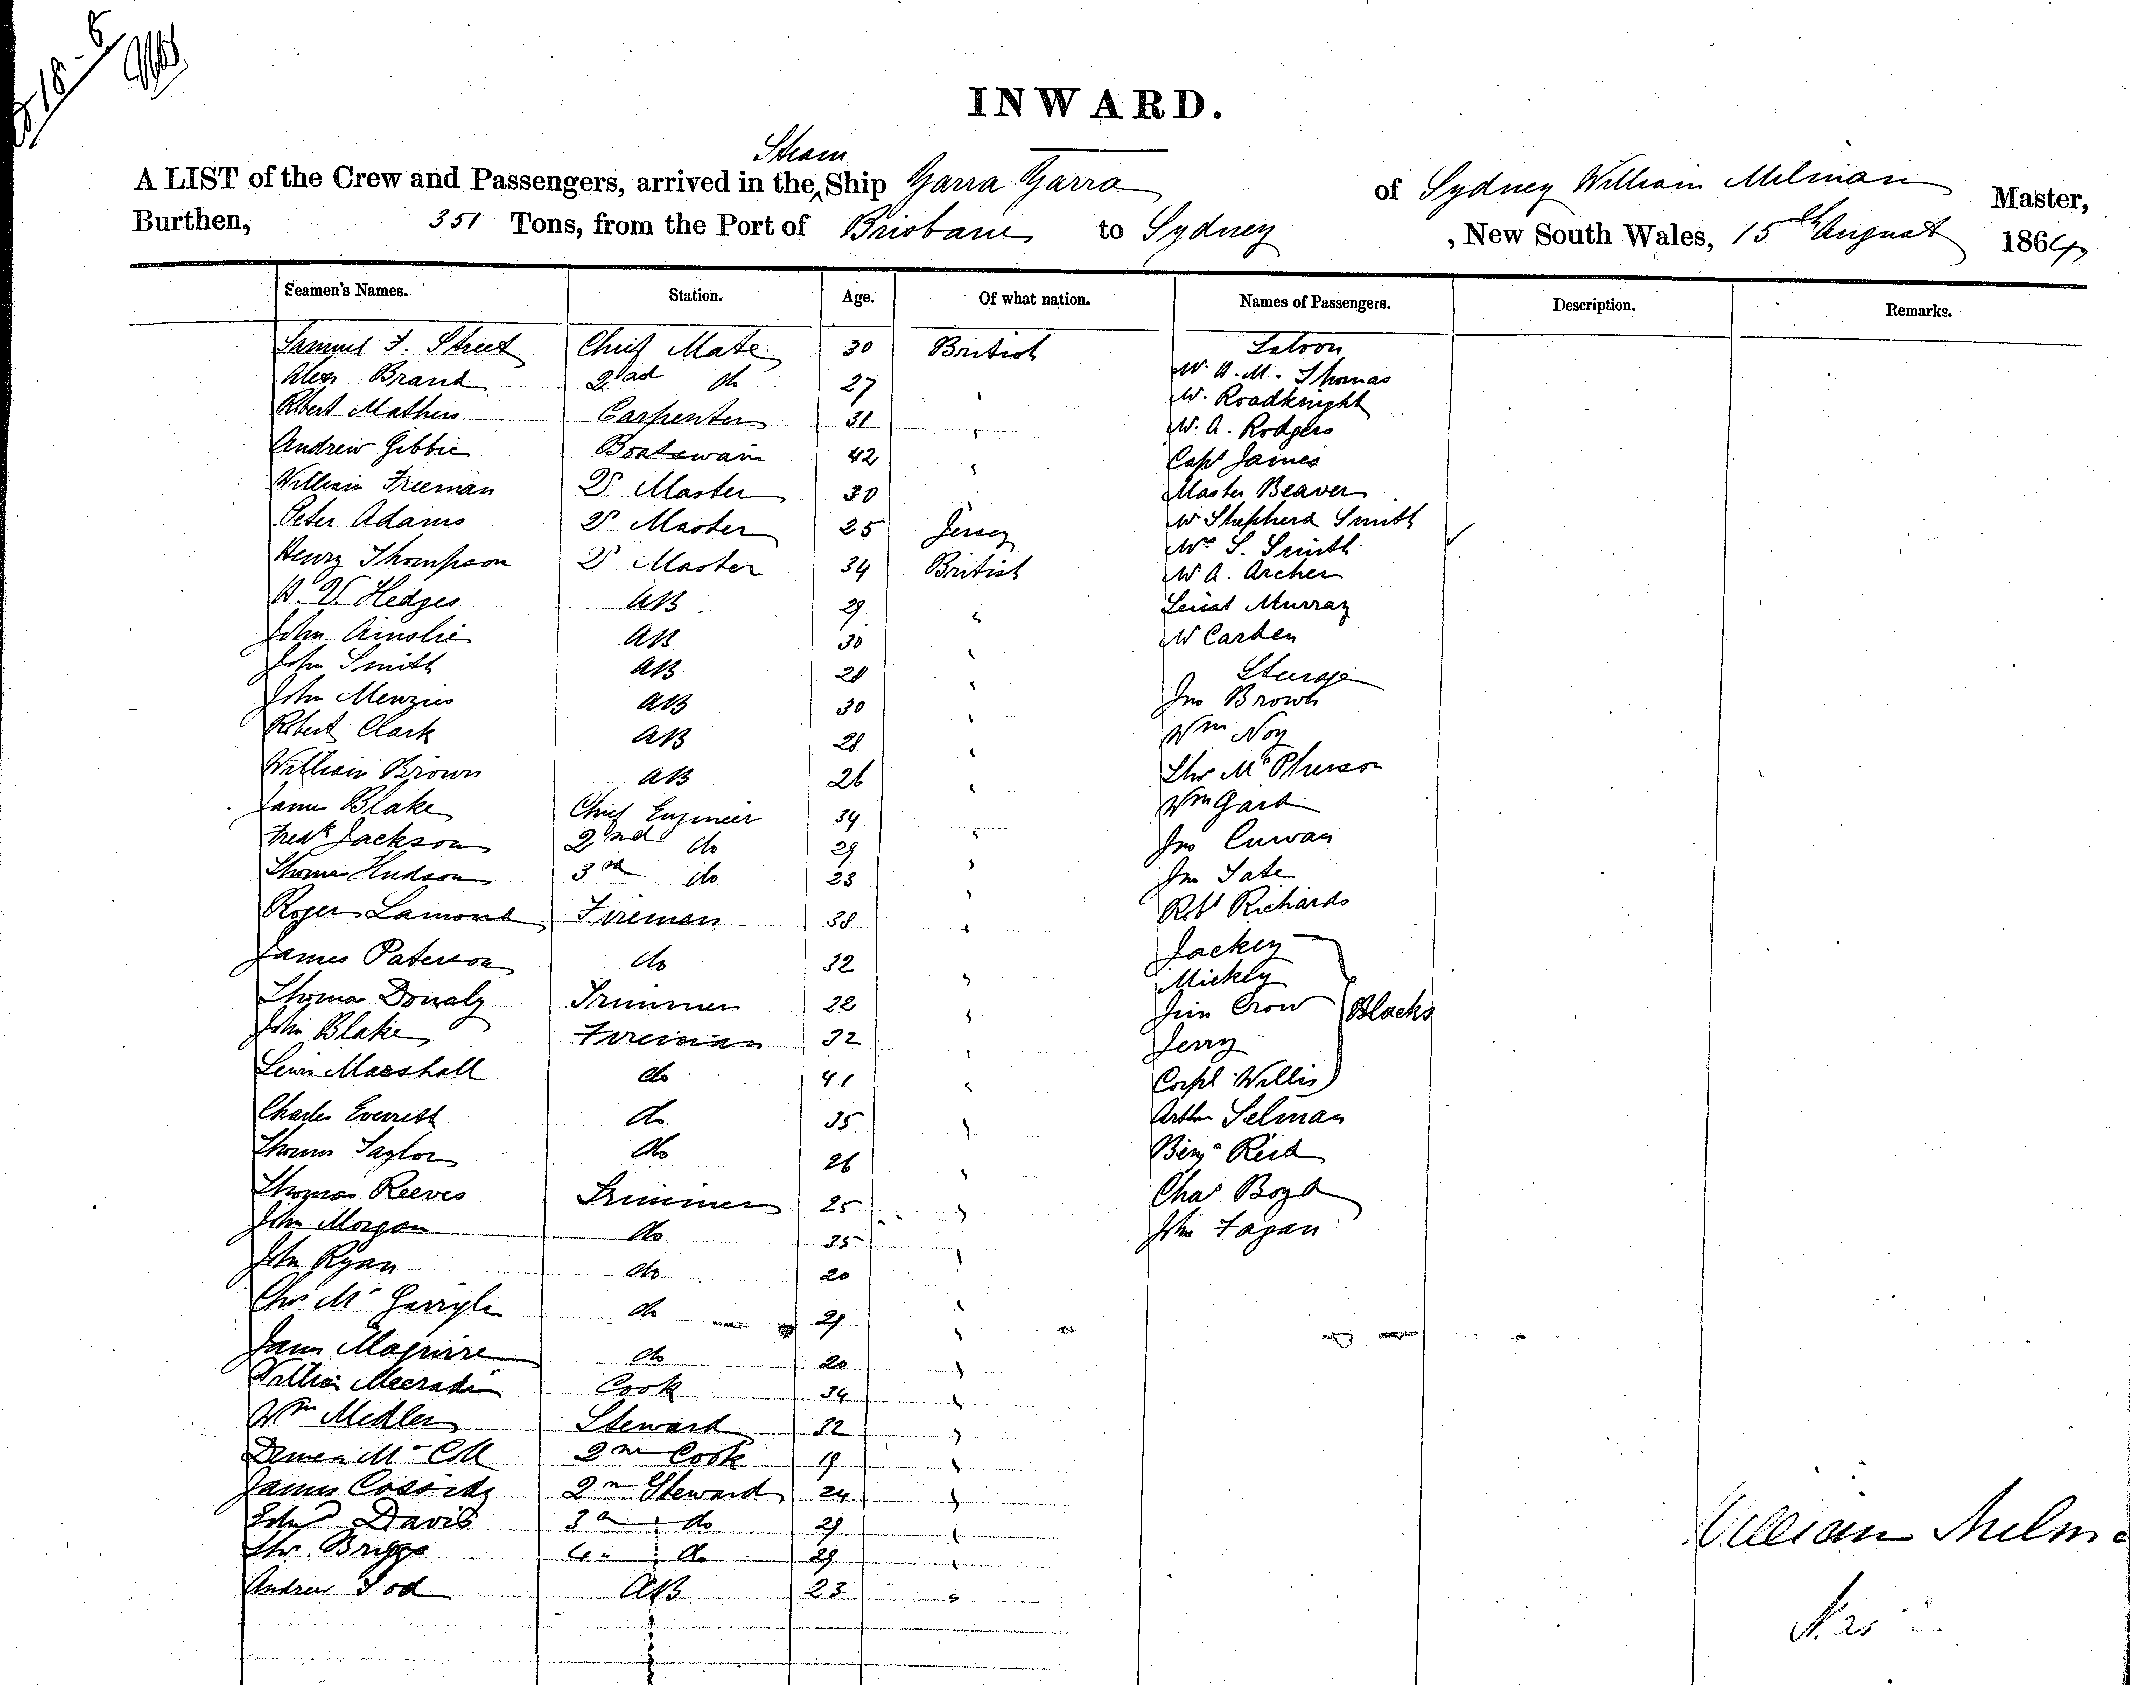 18-8
INWARD.
A LIST of the Crew and Passengers, arrived in the Steam Ship Yarra Yarra of Sydney William Milman Master,
Burthen, 351 Tons, from the Port of Brisbane to Sydney , New South Wales, 15th August 1864
Seamen's Names. Station. Age. Of what nation. Names of Passengers. Description. Remarks.
Samuel F. Street Chief Mate 30 British Saloon
Alexr Brand 2nd do 27 " Mr A. M. Thomas
Mr. Roadknight
Robert Mathers Carpenter 31 " Mr. A. Rodgers
Andrew Gibbie Boatswain 42 " Capt James
William Freeman Qr Master 30 Master Beaver
Peter Adams Qr Master 25 Jersey Mr Shepherd Smith
Henry Thompson Qr Master 34 British Mrs S. Smith
Mr A. Archer
Hedges AB 29 " Lieut Murray
John Ainslie AB 30 " Mr Carden
John Smith AB 28 " Steerage
John Menzies AB 30 " Jno Brown
Robert Clark AB 28 " Wm Noy
William Brown AB 26 " Thos McPherson
James Blake Chief Engineer 34 " Wm Gard
Fredk Jackson 2nd do 29 " Jno Curwan
Thomas Hudson 3rd do 23 " Jno Tate
Roger Lamond Fireman 38 " Robt Richards
James Paterson do 32 " Jackey
Mickey
Thomas Donaly Trimmer 22 " Jim Crow Blacks
John Blake Fireman 32 " Jerry
Lewis Marshall do 41 " Corpl Willis
Charles Everitt do 35 " Arthur Selman
Thomas Taylor do 26 " Benjn Reid
Thomas Reeves Trimmer 25 " Chas Boyd
John Morgan do 35 " John Fagan
John Ryan do 20 "
Chas Mc do 29 "
James Maguire do 20 "
William Cook 34 "
Wm Medler Steward 32 "
Mc Coll 2nd Cook 19 "
James Cassidy 2nd Steward 24 "
Davis 3rd do 29 "
Thos Briggs 4th do 29 "
Andrew Tod AB 23 "
William Milm